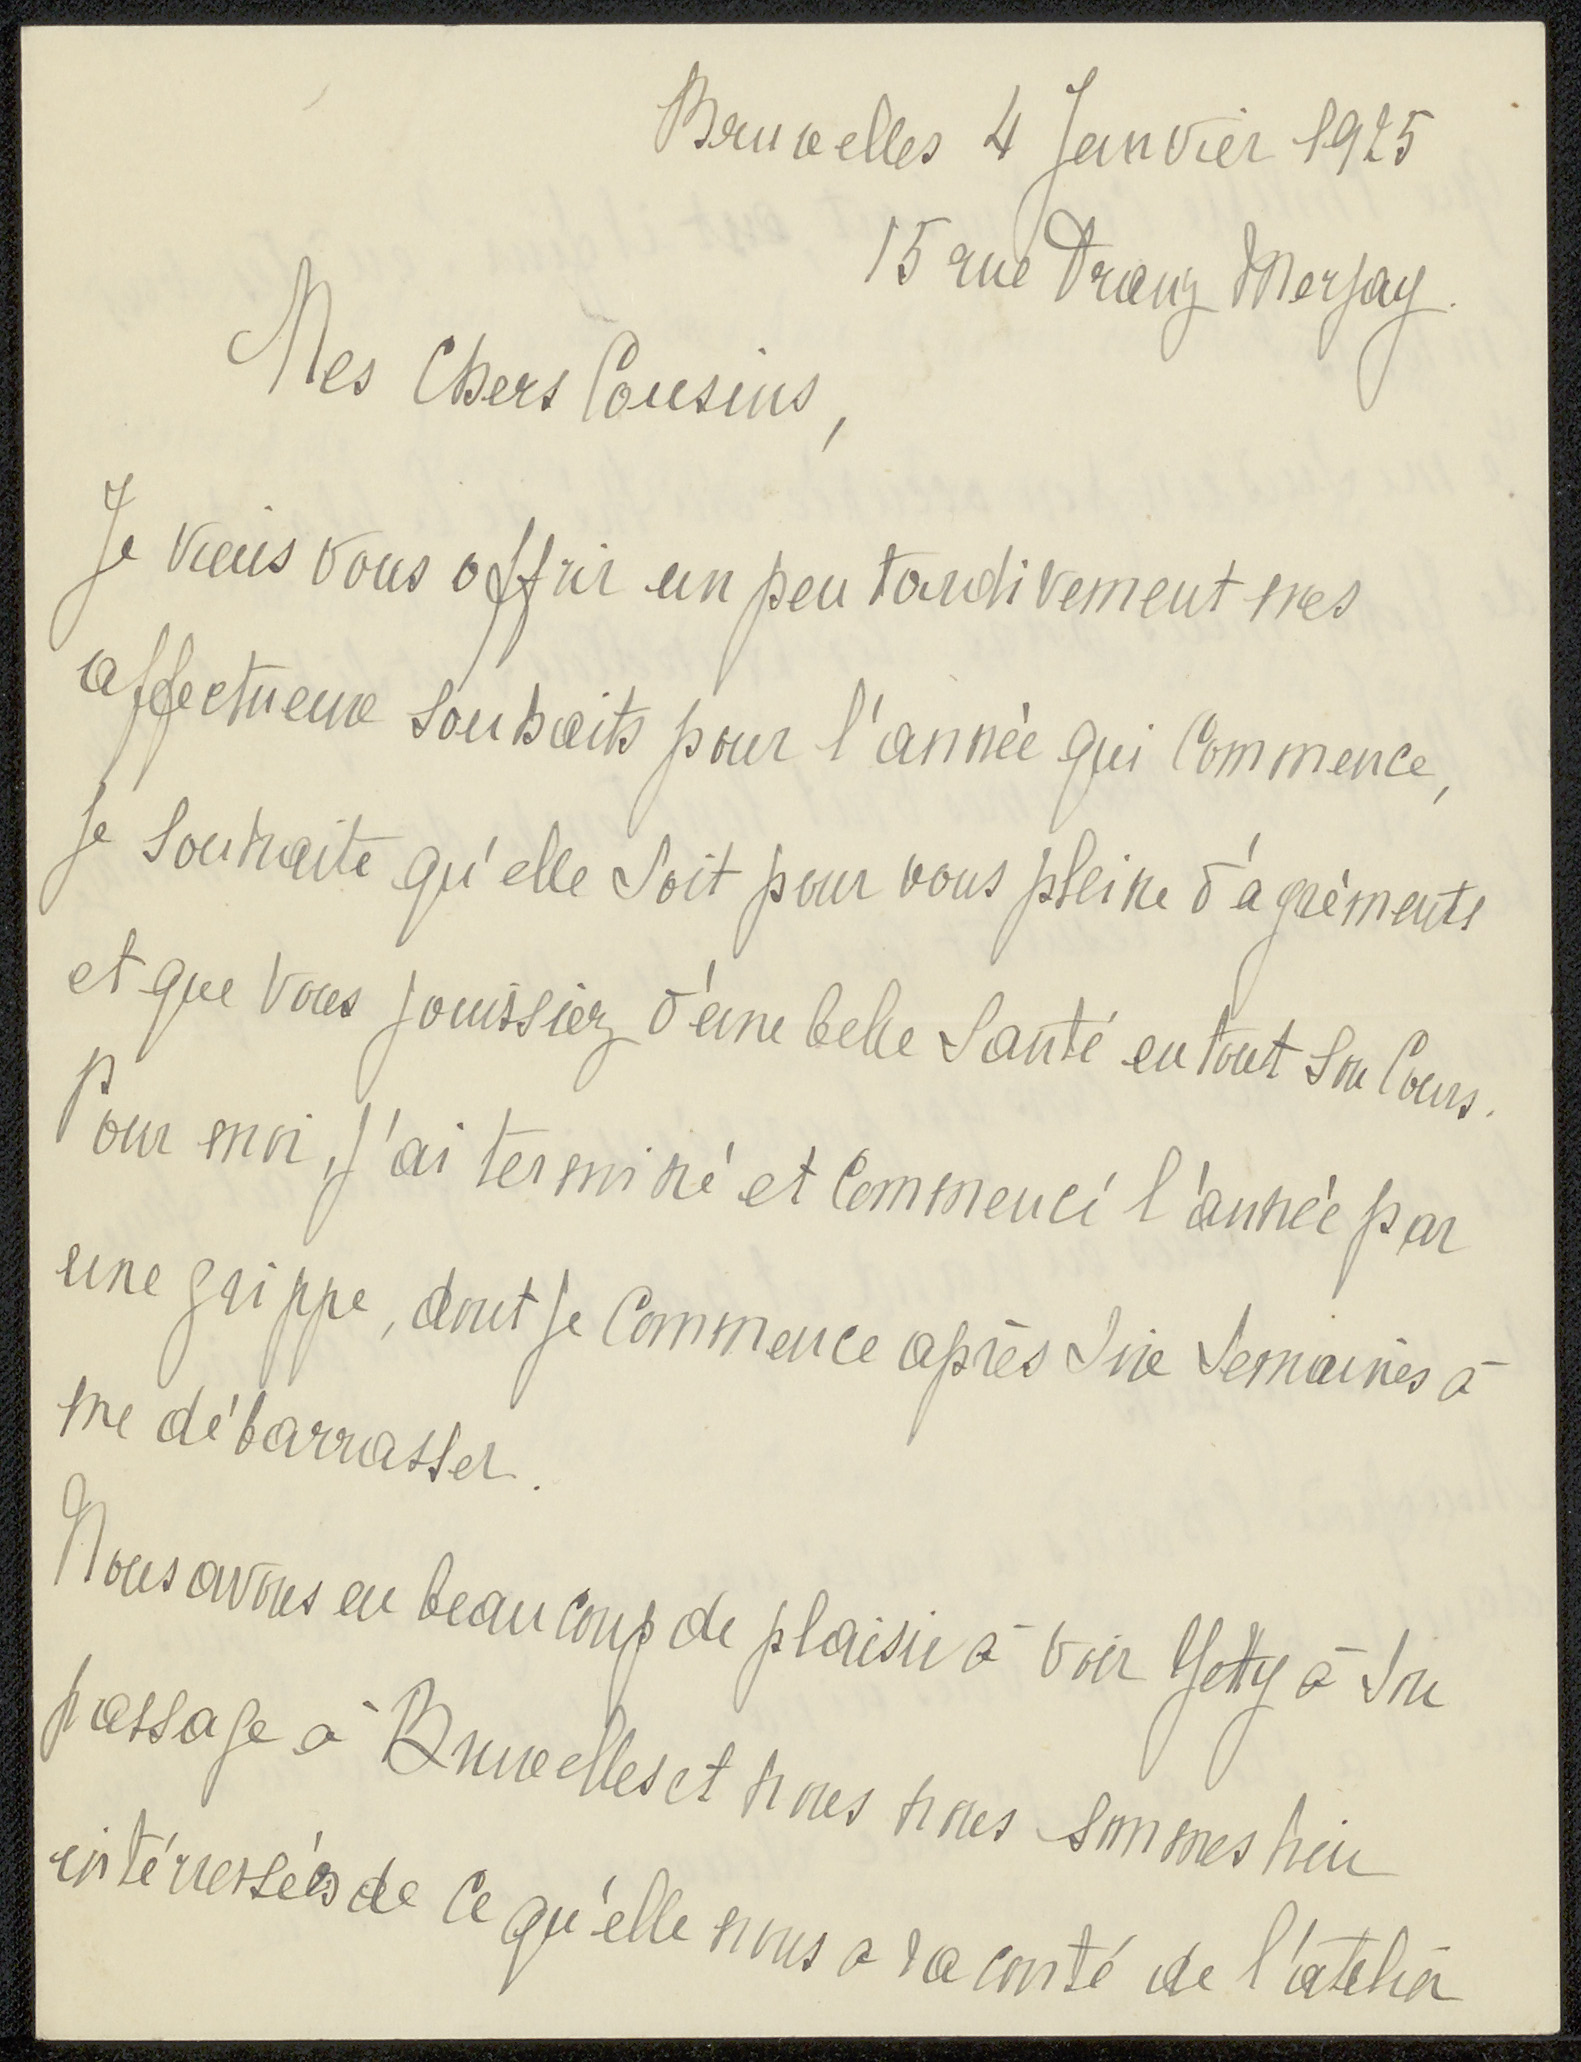 Bruxelles 4 Janvier 1925
15 rue Franz Merjay.
Mes Chers Cousins,
Je viens vous offrir un peu tardivement mes
affectueux souhaits pour l'année qui Commence,
je souhaite qu'elle soit pour vous pleine d'agréments
et que vous jouissiez d'une belle santé en tout son Cours.
Pour moi, j'ai terminé et Commencé l'année par
une grippe, dont je Commence après six semaines à
me débarrasser.
Nous avons eu beaucoup de plaisir à voir Yetty à son
passage à Bruxelles et nous nous sommes bien
intéressés de ce qu'elle nous a raconté de l'atelier